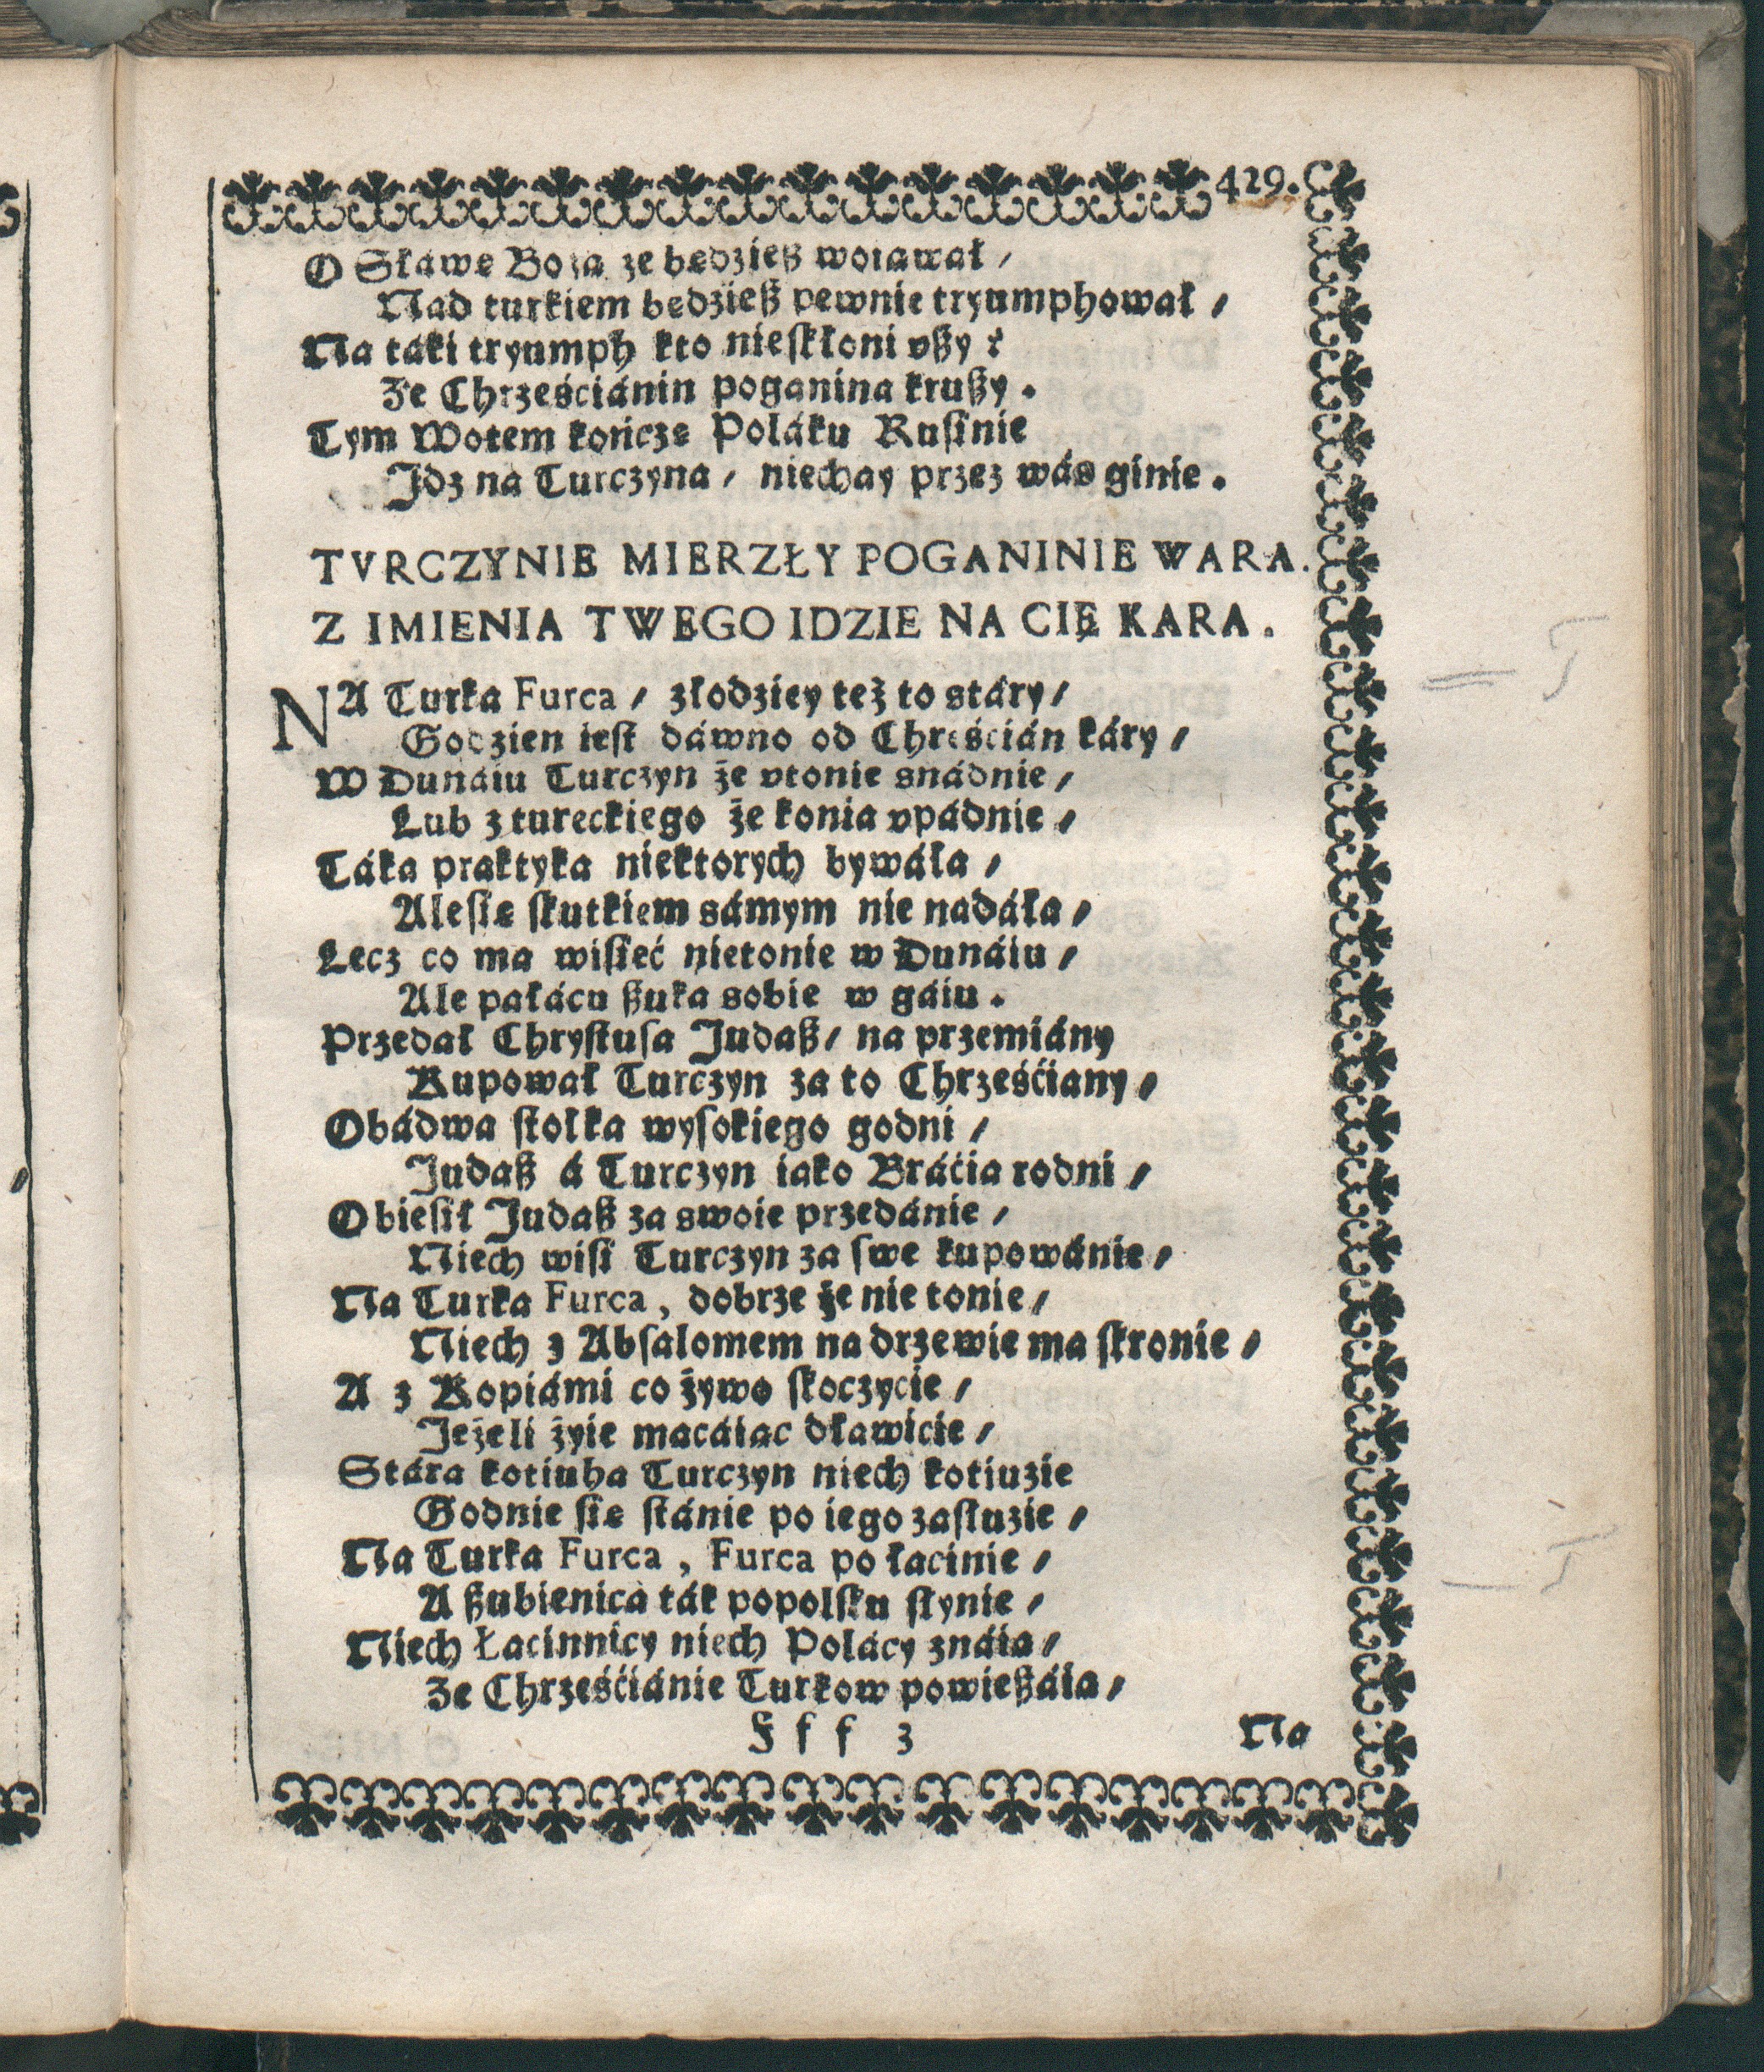 429.
O Sławę Bożą że będzieß woiawał /
Nad turkiem będzieß pewnie tryumphował /
Na táki tryumph kto nieskłoni vßy ?
Że Chrześciánin poganina krußy .
Tym Wotem kończę Poláku Rusinie
Jdz na Turczyna / niechay przez wás ginie .
TVRCZYNIE MIERZŁY POGANINIE WARA.
Z IMIENIA TWEGO IDZIE NA CIĘ KARA .
NA Turka Furca / złodziey też to stáry /
Godzien iest dáwno od Chrześcián káry /
W Dunáiu Turczyn że vtonie snádnie /
Lub z tureckiego że konia vpádnie /
Táka praktyka niektorych bywáła /
Alesię skutkiem sámym nie nadáła /
Lecz co ma wisieć nietonie w Dunáiu /
Ale páłácu ßuka sobie w gáiu .
Przedał Chrystusa Judaß / na przemiány
Kupował Turczyn za to Chrześćiany /
Obádwa stołka wysokiego godni /
Judaß á Turczyn iako Bráćia rodni /
Obiesił Judaß za swoie przedánie /
Niech wisi Turczyn za swe kupowánie /
Na Turka Furca , dobrze że nie tonie /
Niech z Absalomem na drzewie ma skronie /
A z Kopiámi co żywo skoczycie /
Jeżeli żyie macáiąc dławicie /
Stára kotiuha Turczyn niech kotiuzie
Godnie się stánie po iego zasłuzie /
Na Turka Furca , Furca po łacinie /
A ßubienicá ták popolsku słynie /
Niech Łacinnicy niech Polácy znáią /
Że Chrześćiánie Turkow powießáią /
F f f 3
Na